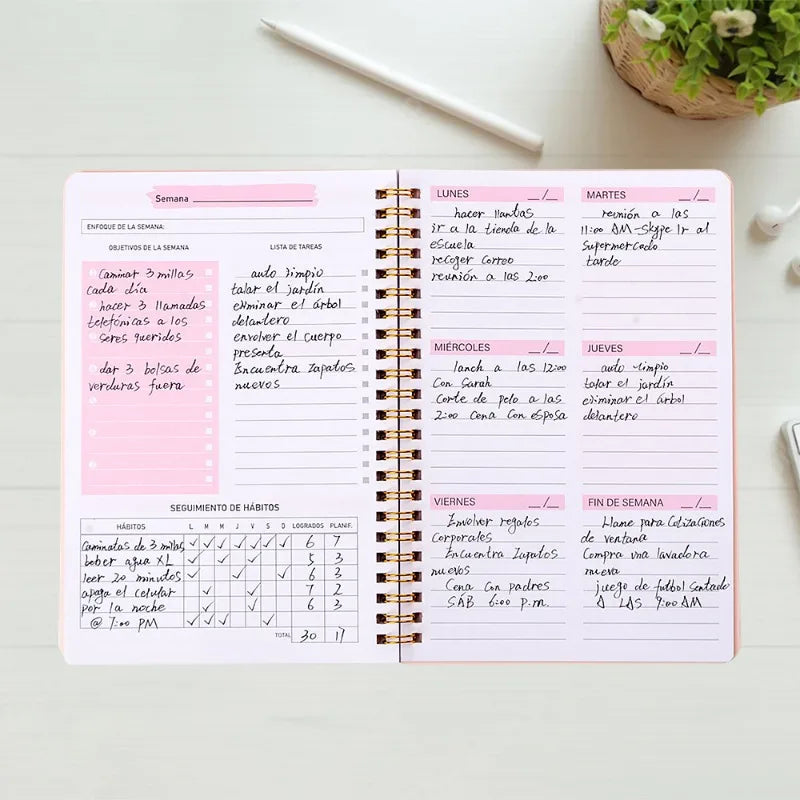 Semana
ENFOQUE DE LA SEMANA:
OBJETIVOS DE LA SEMANA
Caminar 3 millas
cada día
hacer 3 llamadas
telefónicas a los
seres queridos
dar 3 bolsas de
verduras fuera
LISTA DE TAREAS
auto limpio
talar el jardín
eliminar el árbol
delantero
envolver el cuerpo
presenta
Encuentra zapatos
nuevos
SEGUIMIENTO DE HÁBITOS
HÁBITOS L M M J V S D LOGRADOS PLANIF.
Caminatas de 3 millas ✓ ✓ ✓ ✓ ✓ ✓ ✓ 6 7
beber agua XL ✓ ✓ ✓ 5 3
leer 20 minutos ✓ ✓ ✓ 6 3
apaga el celular ✓ ✓ 7 2
por la noche ✓ ✓ 6 3
@ 7:00 PM ✓ ✓ ✓ ✓
TOTAL 30 17
LUNES __/__
hacer llantas
ir a la tienda de la
escuela
recoger correo
reunión a las 2:00
MARTES __/__
reunión a las
11:00 AM-Skype Ir al
supermercado
tarde
MIÉRCOLES __/__
lanch a las 12:00
Con Sarah
Corte de pelo a las
2:00 Cena Con esposa
JUEVES __/__
auto limpio
talar el jardín
eliminar el árbol
delantero
VIERNES __/__
Envolver regalos
Corporales
Encuentra zapatos
nuevos
Cena Con padres
SAB 6:00 p.m.
FIN DE SEMANA __/__
Llame para Cotizaciones
de ventana
Compra una lavadora
nueva
juego de futbol Sentado
A LAS 9:00 AM